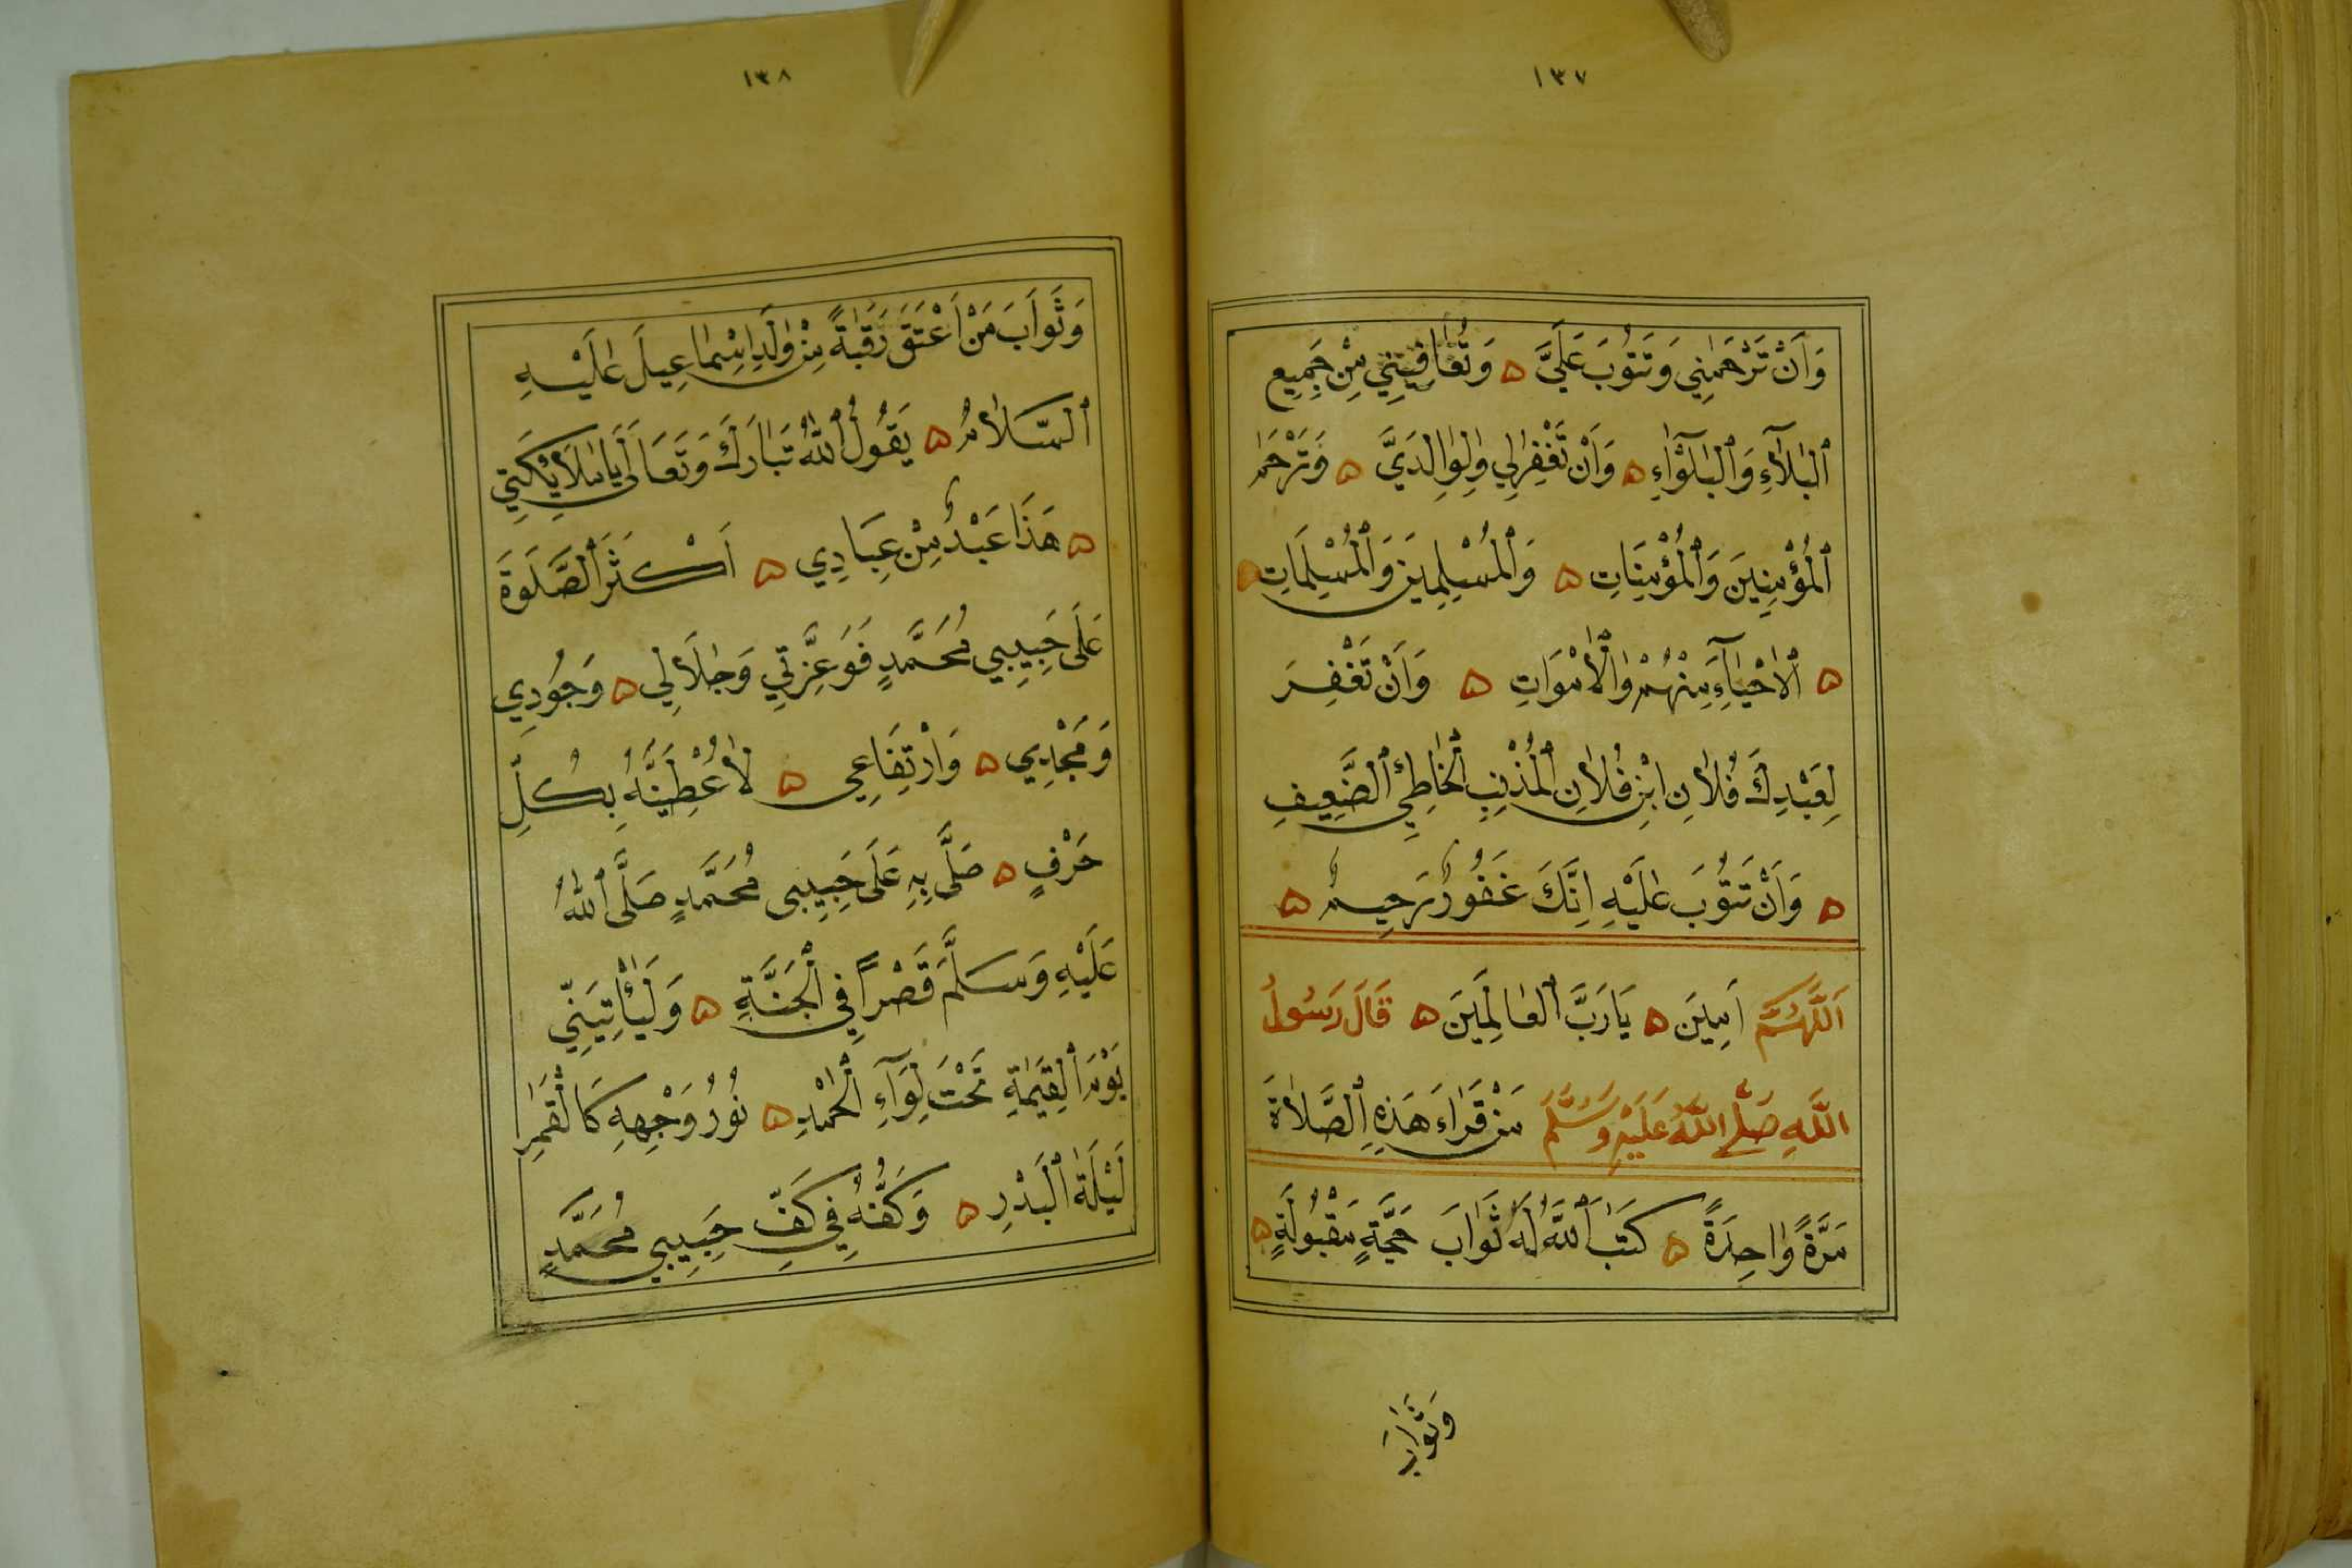 ١٣٧
وَاَنْ تَرْحَمَنِي وَتَتُوبَ عَلَيَّ ۝ وَتُعَافِيَنِي مِنْ جَمِيعِ
ٱلْبَلَآءِ وَٱلْبَلْوَآءِ ۝ وَاَنْ تَغْفِرَلِي وَلِوَالِدَيَّ ۝ وَتَرْحَمَ
ٱلْمُؤْمِنِينَ وَٱلْمُؤْمِنَاتِ ۝ وَٱلْمُسْلِمِينَ وَٱلْمُسْلِمَاتِ ۝
۝ ٱلْاَحْيَآءِ مِنْهُمْ وَٱلْاَمْوَاتِ ۝ وَاَنْ تَغْفِرَ
لِعَبْدِكَ فُلَانِ ابْنِ فُلَانِ ٱلْمُذْنِبِ ٱلْخَاطِئِ ٱلضَّعِيفِ
۝ وَاَنْ تَتُوبَ عَلَيْهِ اِنَّكَ غَفُورٌ رَحِيمٌ ۝
اَللّٰهُمَّ اَمِينَ ۝ يَارَبَّ ٱلْعَالَمِينَ ۝ قَالَ رَسُولُ
اللّٰهِ صَلَّى اللّٰهُ عَلَيْهِ وَسَلَّمَ مَنْ قَرَاءَ هَذِهِ ٱلصَّلَاةَ
مَرَّةً وَاحِدَةً ۝ كَتَبَ ٱللّٰهُ لَهُ ثَوَابَ حَجَّةٍ مَقْبُولَةٍ ۝
وَثَوَابَ
١٣٨
وَثَوَابَ مَنْ اَعْتَقَ رَقَبَةً مِنْ وَلَدِ اِسْمَاعِيلَ عَلَيْهِ
ٱلسَّلَامُ ۝ يَقُولُ ٱللّٰهُ تَبَارَكَ وَتَعَالَى يَامَلَايِكَتِي
۝ هَذَا عَبْدٌ مِنْ عِبَادِي ۝ اَكْثَرَ ٱلصَّلَوةَ
عَلَى حَبِيبِي مُحَمَّدٍ فَوَعِزَّتِي وَجَلَالِي ۝ وَجُودِي
وَمَجْدِي ۝ وَارْتِفَاعِي ۝ لَاُعْطِيَنَّهُ بِكُلِّ
حَرْفٍ ۝ صَلَّى بِهِ عَلَى حَبِيبِى مُحَمَّدٍ صَلَّى ٱللّٰهُ
عَلَيْهِ وَسَلَّمَ قَصْرًا فِي ٱلْجَنَّةِ ۝ وَلَيَأْتِيَنِّي
يَوْمَ ٱلْقِيَمَةِ تَحْتَ لِوَآءِ ٱلْحَمْدِ ۝ نُورُ وَجْهِهِ كَالْقَمَرِ
لَيْلَةَ ٱلْبَدْرِ ۝ وَكَفُّهُ فِي كَفِّ حَبِيبِي مُحَمَّدٍ